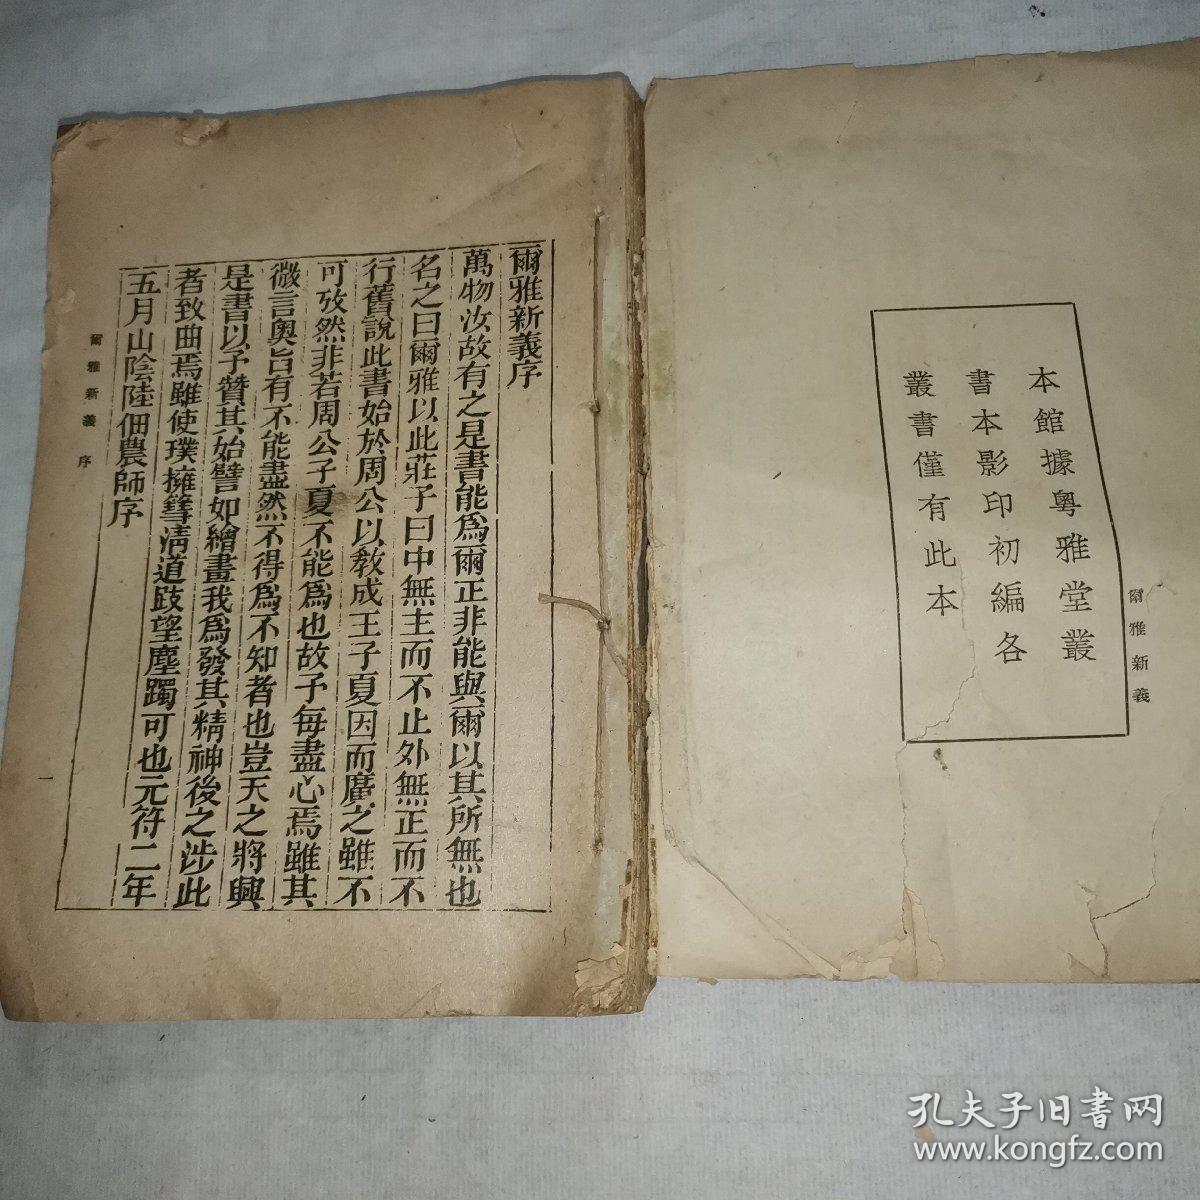 本館據粵雅堂叢
書本影印初編各
叢書僅有此本
爾雅新義
爾雅新義序
萬物汝故有之是書能爲爾正非能與爾以其所無也
名之曰爾雅以此莊子曰中無主而不止外無正而不
行舊說此書始於周公以教成王子夏因而廣之雖不
可攷然非若周公子夏不能爲也故予每盡心焉雖其
微言奧旨有不能盡然不得爲不知者也豈天之將興
是書以予贊其始譬如繪畫我爲發其精神後之涉此
者致曲焉雖使璞擁篲清道跂望塵躅可也元符二年
五月山陰陸佃農師序
爾雅新義 序
一
孔夫子旧书网
www.kongfz.com